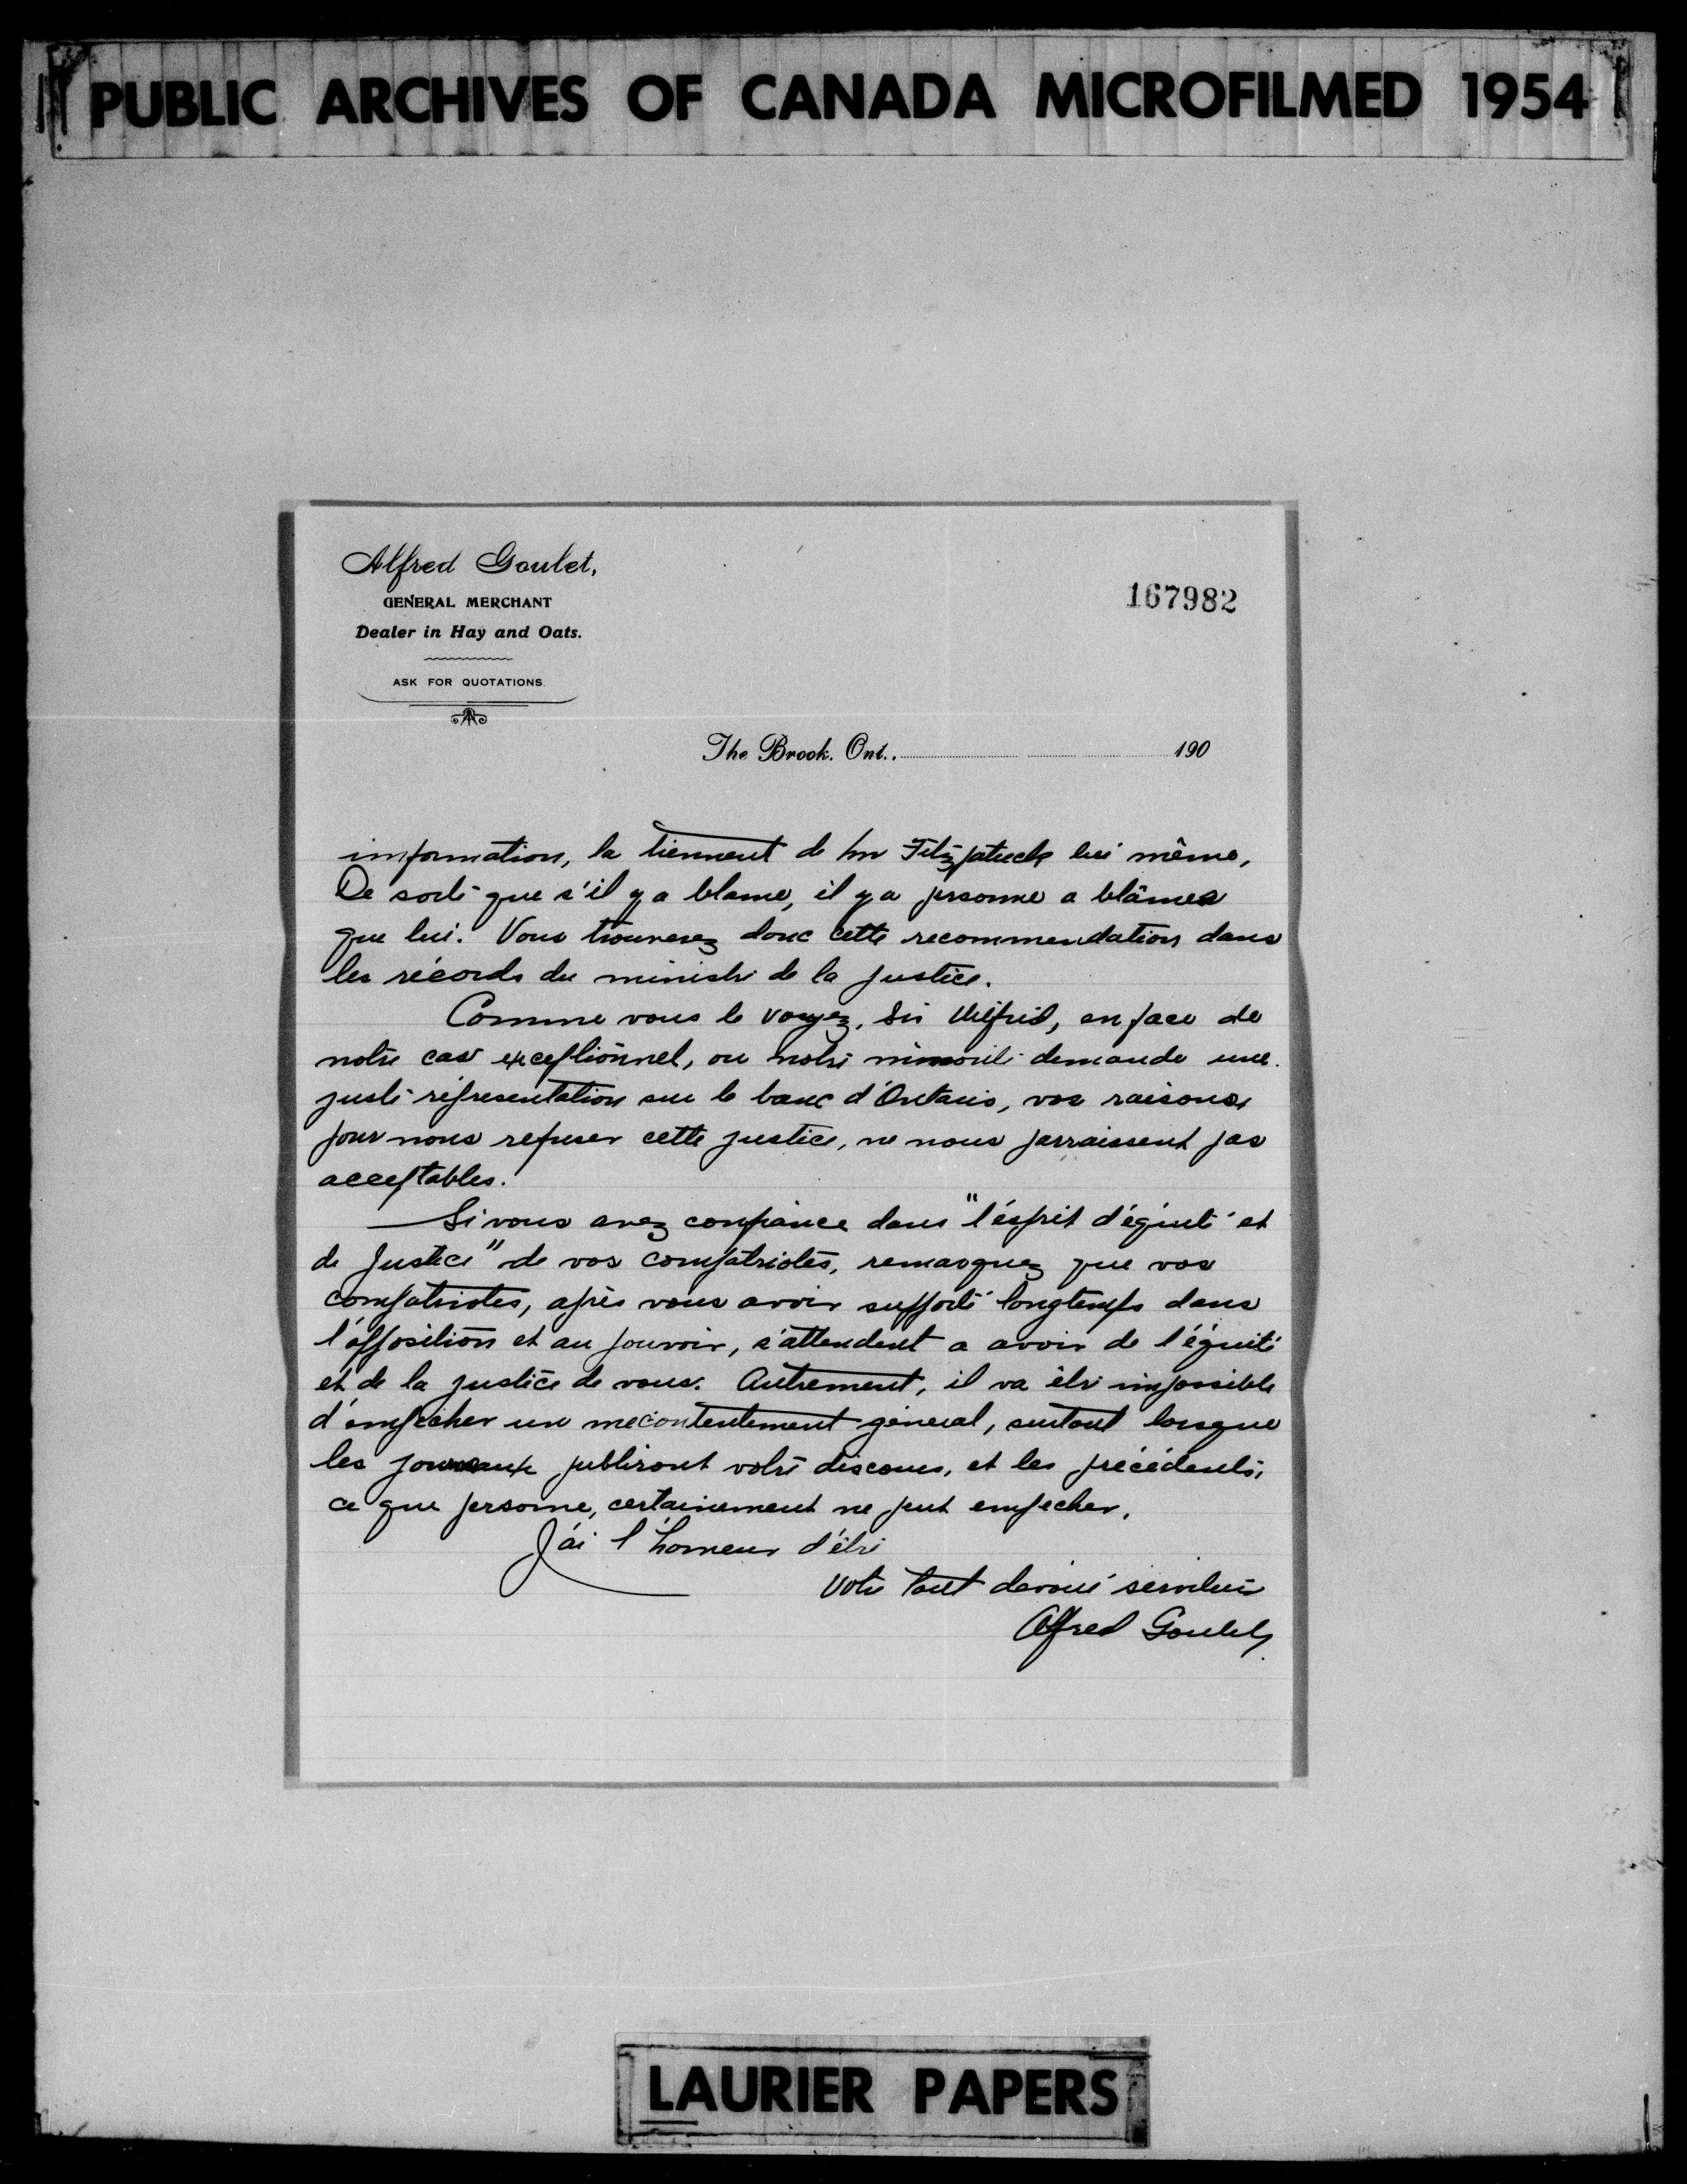 PUBLIC ARCHIVES OF CANADA MICROFILMED 1954
Alfred Goulet,
GENERAL MERCHANT
Dealer in Hay and Oats.
ASK FOR QUOTATIONS.
167982
The Brook. Ont., 190
information, la tiennent de Mr Fitzpatrick lui même,
De sorte que s'il y a blame, il y a personne a blâmer
que lui. Vous trouverez donc cette recommendation dans
les récords du ministre de la justice.
Comme vous le voyez, Sir Wilfrid, en face de
notre cas exceptionnel, ou notre minorité demande une
juste représentation sur le banc d'Ontario, vos raisons,
pour nous refuser cette justice, ne nous parraissent pas
acceptables.
Si vous avez confiance dans "l'ésprit d'équité et
de Justice" de vos compatriotes, remarquez que vos
compatriotes, après vous avoir supporté longtemps dans
l'opposition et au pouvoir, s'attendent a avoir de l'équité
et de la justice de vous. Autrement, il va être impossible
d'empecher un mecontentement géneral, surtout lorsque
les journaux publiront votre discours, et les précédents,
ce que persone, certainement ne peut empecher.
J'ai l'honneur d'être
Votre tout devoué serviteur
Alfred Goulet
LAURIER PAPERS